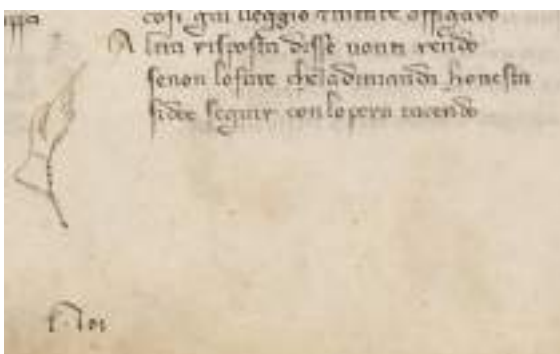 cosi giu ueggio & niente affiguro
A ltra risposta disse nonti rendo
senon lofare cheladimanda honesta
sidee seguir conlopera tacendo